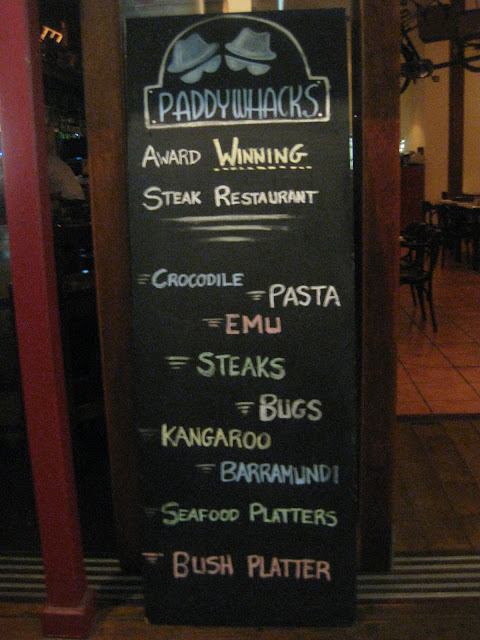 PADDYWHACKS
AWARD WINNING
STEAK RESTAURANT
CROCODILE
PASTA
EMU
STEAKS
BUGS
KANGAROO
BARRAMUNDI
SEAFOOD PLATTERS
BUSH PLATTER